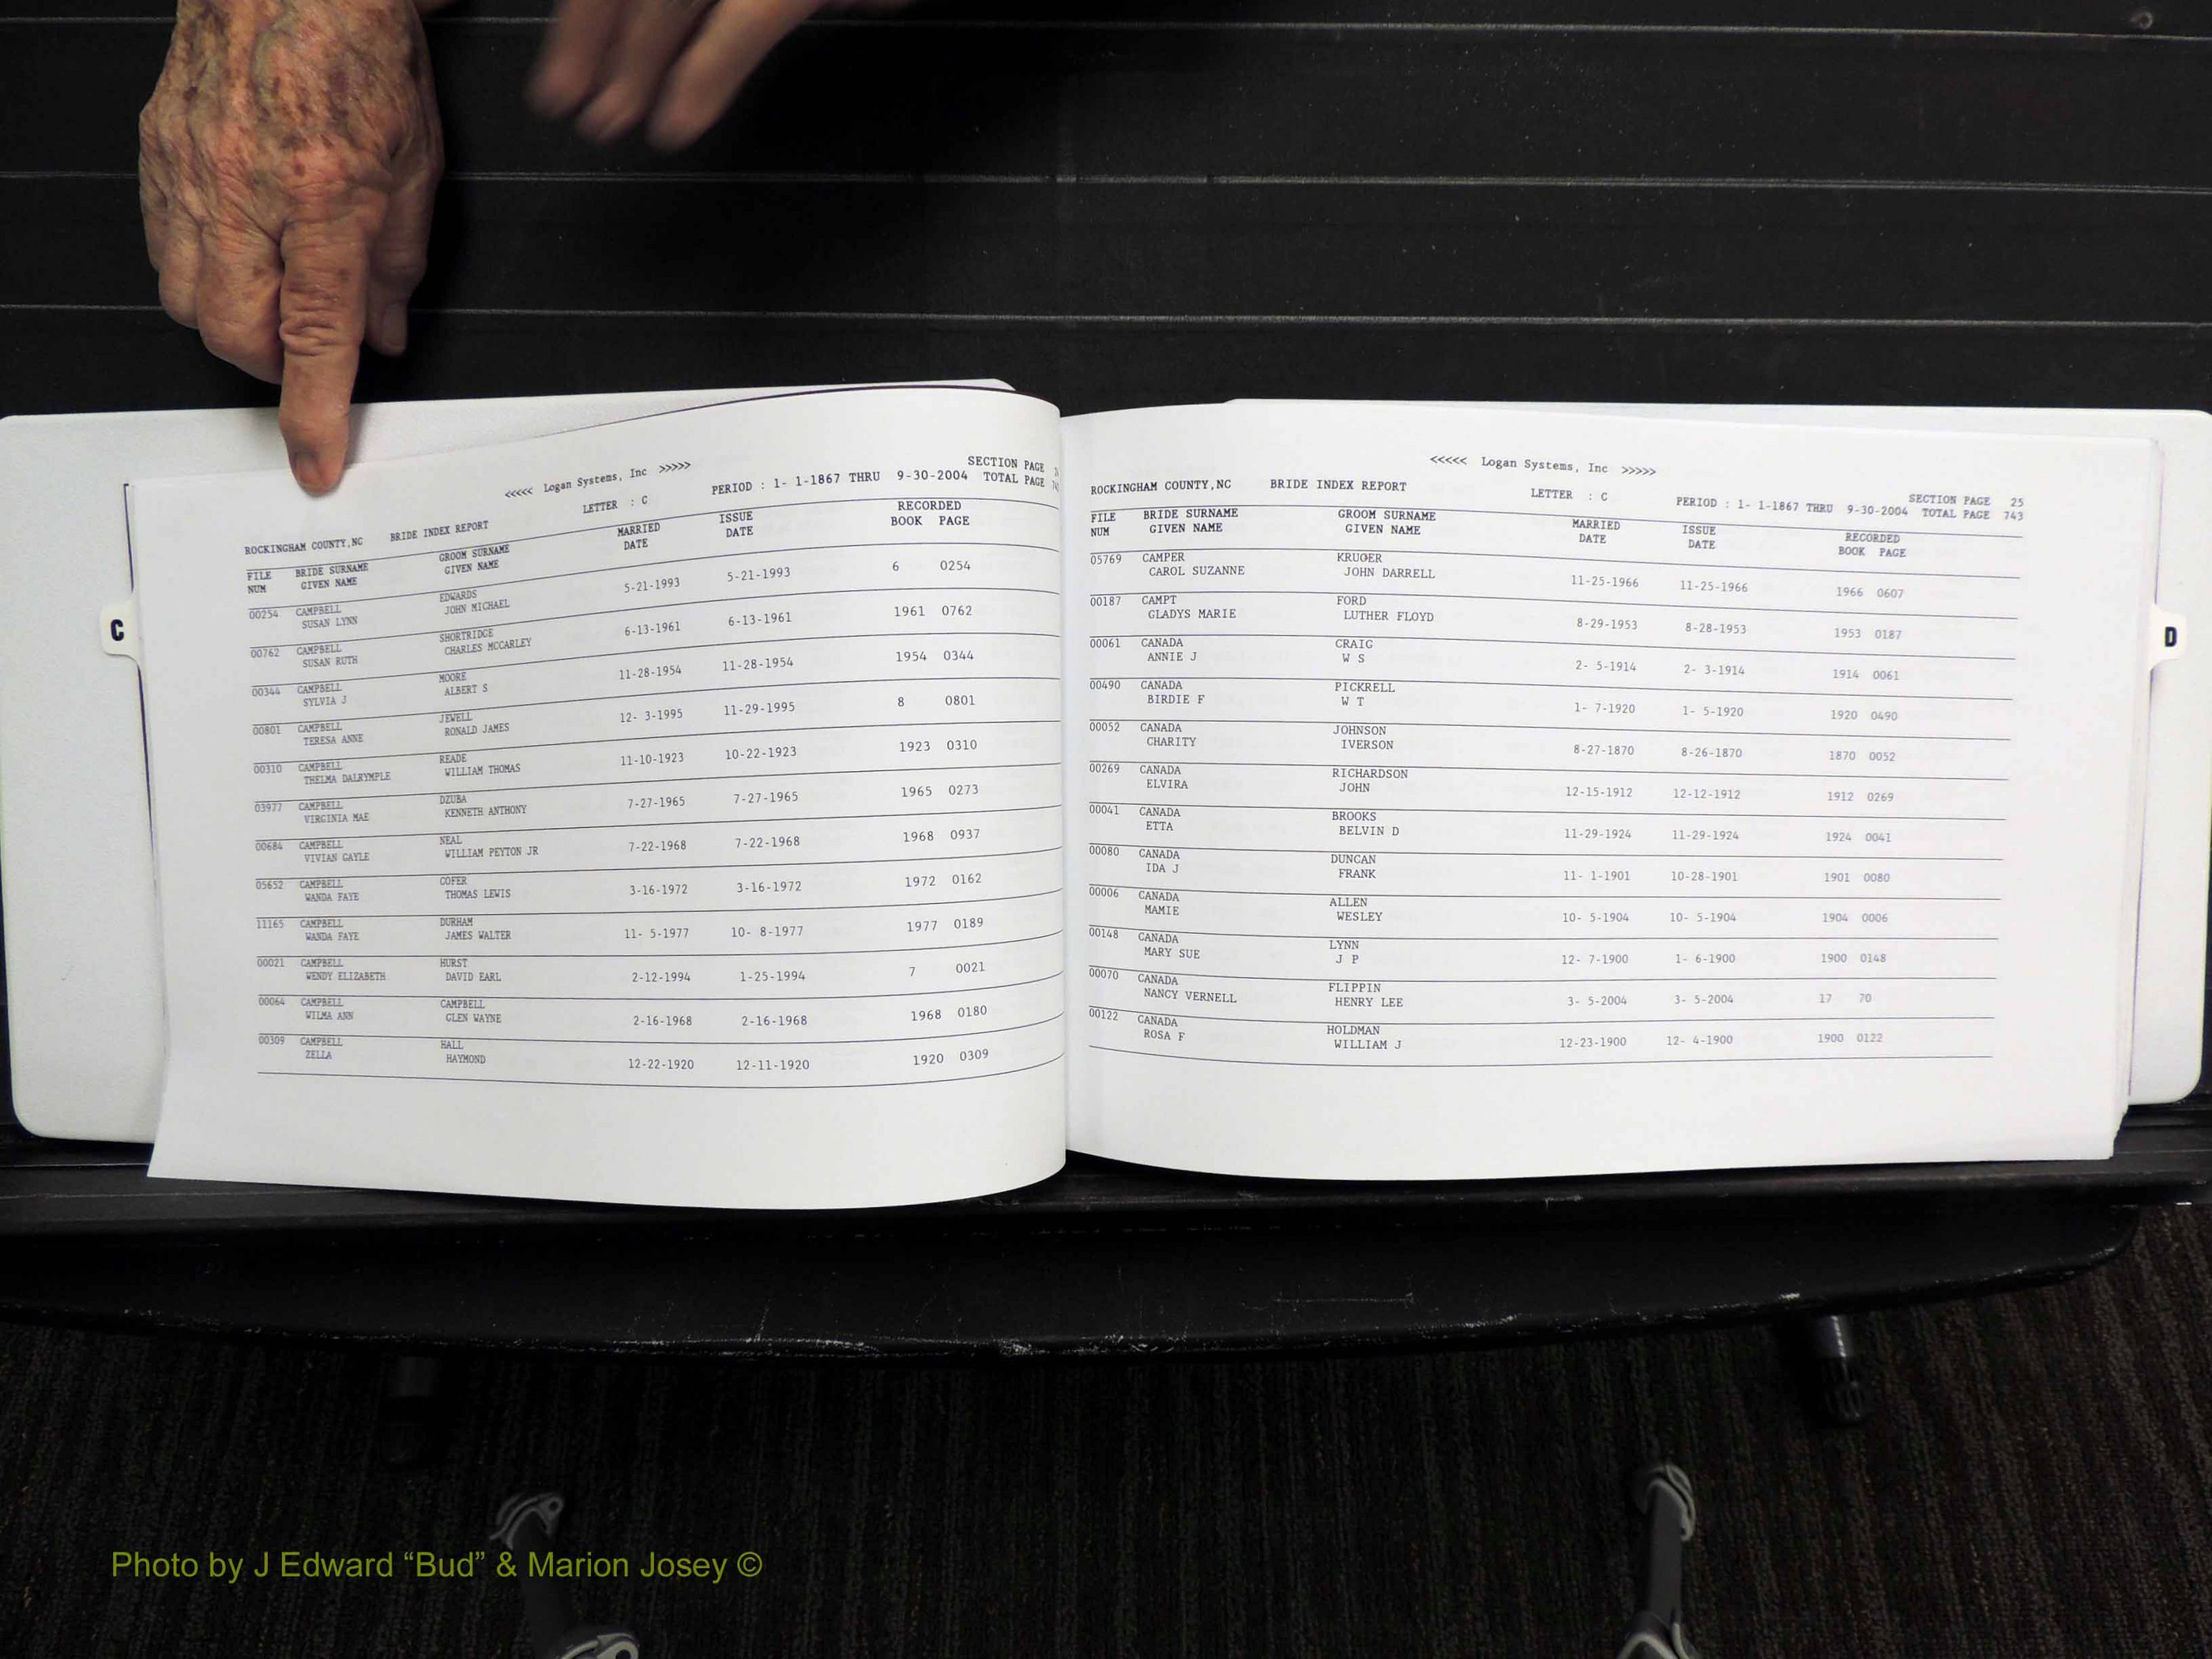 <<<<< Logan Systems, Inc >>>>>
SECTION PAGE
ROCKINGHAM COUNTY,NC BRIDE INDEX REPORT LETTER : C PERIOD : 1- 1-1867 THRU 9-30-2004 TOTAL PAGE
FILE BRIDE SURNAME GROOM SURNAME MARRIED ISSUE RECORDED
NUM GIVEN NAME GIVEN NAME DATE DATE BOOK PAGE
00254 CAMPBELL EDWARDS 5-21-1993 5-21-1993 6 0254
SUSAN LYNN JOHN MICHAEL
00762 CAMPBELL SHORTRIDGE 6-13-1961 6-13-1961 1961 0762
SUSAN RUTH CHARLES MCCARLEY
00344 CAMPBELL MOORE 11-28-1954 11-28-1954 1954 0344
SYLVIA J ALBERT S
00801 CAMPBELL JEWELL 12- 3-1995 11-29-1995 8 0801
TERESA ANNE RONALD JAMES
00310 CAMPBELL READE 11-10-1923 10-22-1923 1923 0310
THELMA DALRYMPLE WILLIAM THOMAS
03977 CAMPBELL DZUBA 7-27-1965 7-27-1965 1965 0273
VIRGINIA MAE KENNETH ANTHONY
00684 CAMPBELL NEAL 7-22-1968 7-22-1968 1968 0937
VIVIAN GAYLE WILLIAM PEYTON JR
05652 CAMPBELL COFER 3-16-1972 3-16-1972 1972 0162
WANDA FAYE THOMAS LEWIS
11165 CAMPBELL DURHAM 11- 5-1977 10- 8-1977 1977 0189
WANDA FAYE JAMES WALTER
00021 CAMPBELL HURST 2-12-1994 1-25-1994 7 0021
WENDY ELIZABETH DAVID EARL
00064 CAMPBELL CAMPBELL 2-16-1968 2-16-1968 1968 0180
WILMA ANN GLEN WAYNE
00309 CAMPBELL HALL 12-22-1920 12-11-1920 1920 0309
ZELLA HAYMOND
C
<<<<< Logan Systems, Inc >>>>>
SECTION PAGE 25
ROCKINGHAM COUNTY,NC BRIDE INDEX REPORT LETTER : C PERIOD : 1- 1-1867 THRU 9-30-2004 TOTAL PAGE 743
FILE BRIDE SURNAME GROOM SURNAME MARRIED ISSUE RECORDED
NUM GIVEN NAME GIVEN NAME DATE DATE BOOK PAGE
05769 CAMPER KRUGER 11-25-1966 11-25-1966 1966 0607
CAROL SUZANNE JOHN DARRELL
00187 CAMPT FORD 8-29-1953 8-28-1953 1953 0187
GLADYS MARIE LUTHER FLOYD
00061 CANADA CRAIG 2- 5-1914 2- 3-1914 1914 0061
ANNIE J W S
00490 CANADA PICKRELL 1- 7-1920 1- 5-1920 1920 0490
BIRDIE F W T
00052 CANADA JOHNSON 8-27-1870 8-26-1870 1870 0052
CHARITY IVERSON
00269 CANADA RICHARDSON 12-15-1912 12-12-1912 1912 0269
ELVIRA JOHN
00041 CANADA BROOKS 11-29-1924 11-29-1924 1924 0041
ETTA BELVIN D
00080 CANADA DUNCAN 11- 1-1901 10-28-1901 1901 0080
IDA J FRANK
00006 CANADA ALLEN 10- 5-1904 10- 5-1904 1904 0006
MAMIE WESLEY
00148 CANADA LYNN 12- 7-1900 1- 6-1900 1900 0148
MARY SUE J P
00070 CANADA FLIPPIN 3- 5-2004 3- 5-2004 17 70
NANCY VERNELL HENRY LEE
00122 CANADA HOLDMAN 12-23-1900 12- 4-1900 1900 0122
ROSA F WILLIAM J
D
Photo by J Edward “Bud” & Marion Josey ©